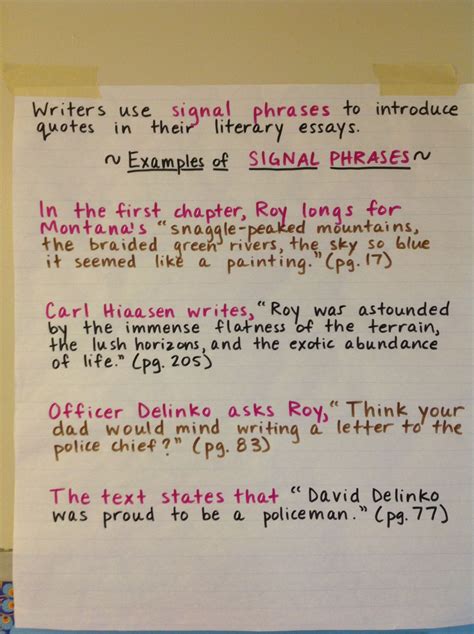 Writers use signal phrases to introduce
quotes in their literary essays.
~ Examples of SIGNAL PHRASES ~
In the first chapter, Roy longs for
Montana's "snaggle-peaked mountains,
the braided green rivers, the sky so blue
it seemed like a painting." (pg. 17)
Carl Hiaasen writes, "Roy was astounded
by the immense flatness of the terrain,
the lush horizons, and the exotic abundance
of life." (pg. 205)
Officer Delinko asks Roy, "Think your
dad would mind writing a letter to the
police chief?" (pg. 83)
The text states that "David Delinko
was proud to be a policeman." (pg. 77)